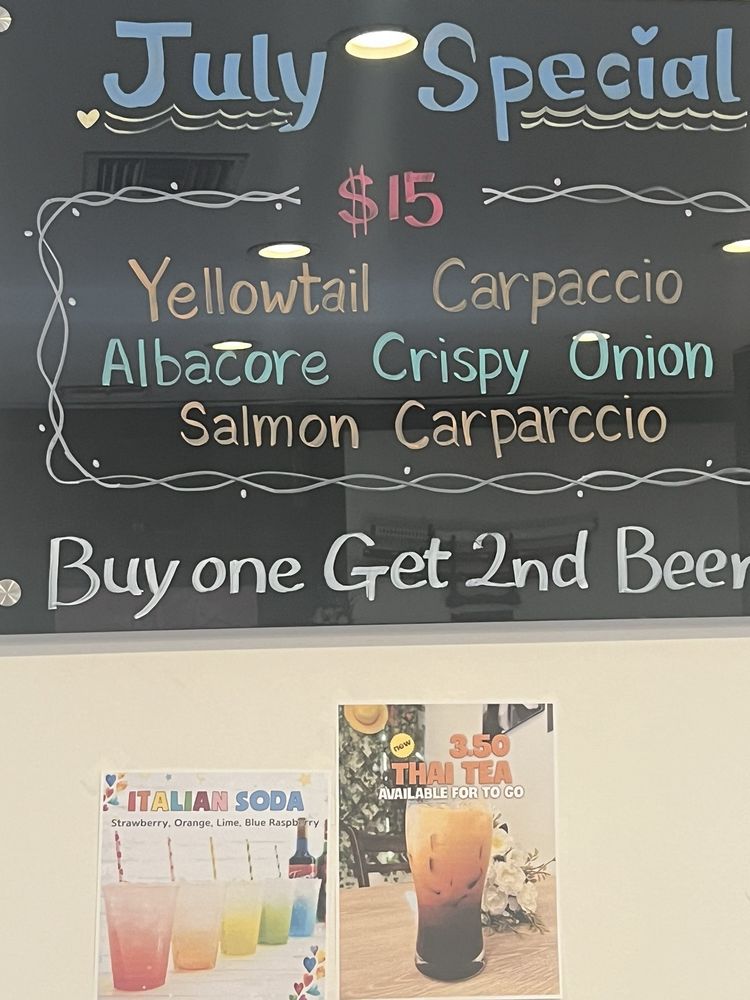 July Special
$15
Yellowtail Carpaccio
Albacore Crispy Onion
Salmon Carparccio
Buy one Get 2nd Beer
ITALIAN SODA
Strawberry, Orange, Lime, Blue Raspberry
new
3.50
THAI TEA
AVAILABLE FOR TO GO